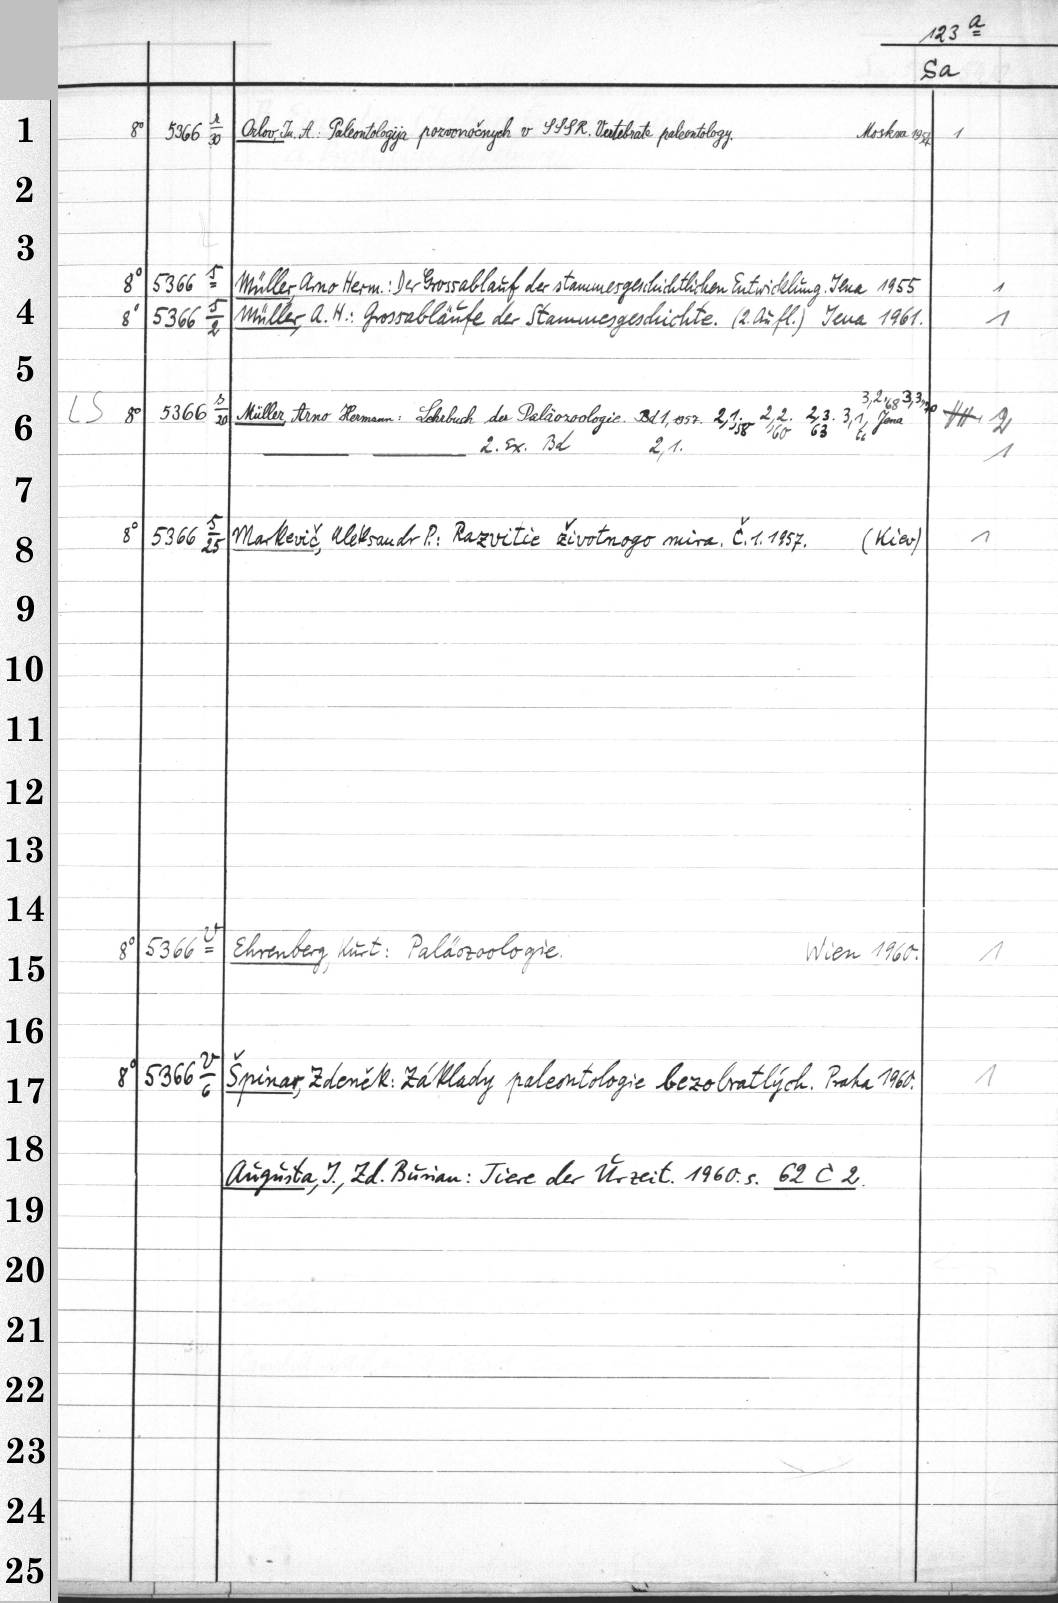 123 a
Sa
1 8° 5366 r/30 Orlov, Ju. A.: Paleontologija pozvonočnych v SSSR. Vertebrate paleontology. Moskva 1954 1
2
3
8° 5366 s Müller, Arno Herm.: Der Grossablauf der stammesgeschichtlichen Entwicklung. Jena 1955 1
4 8° 5366 s/2 Müller, A. H.: Grossabläufe der Stammesgeschichte. (2. Aufl.) Jena 1961. 1
5
3,2,68 3,3,70
6 LS 8° 5366 s/20 Müller, Arno Hermann: Lehrbuch der Paläozoologie. Bd 1, 1957. 2,1,58 2,2,60 2,3,63 3,1, Jena 2
2. Ex. Bd 2,1. 1
7
8 8° 5366 s/25 Markevič, Aleksandr P.: Razvitie životnogo mira. Č. 1. 1957. (Kiev) 1
9
10
11
12
13
14
15 8° 5366 v Ehrenberg, Kurt: Paläozoologie. Wien 1960. 1
16
17 8° 5366 v/6 Špinar, Zdeněk: Základy paleontologie bezobratlých. Praha 1960. 1
18
Augusta, J., Zd. Burian: Tiere der Urzeit. 1960. s. 62 C 2.
19
20
21
22
23
24
25